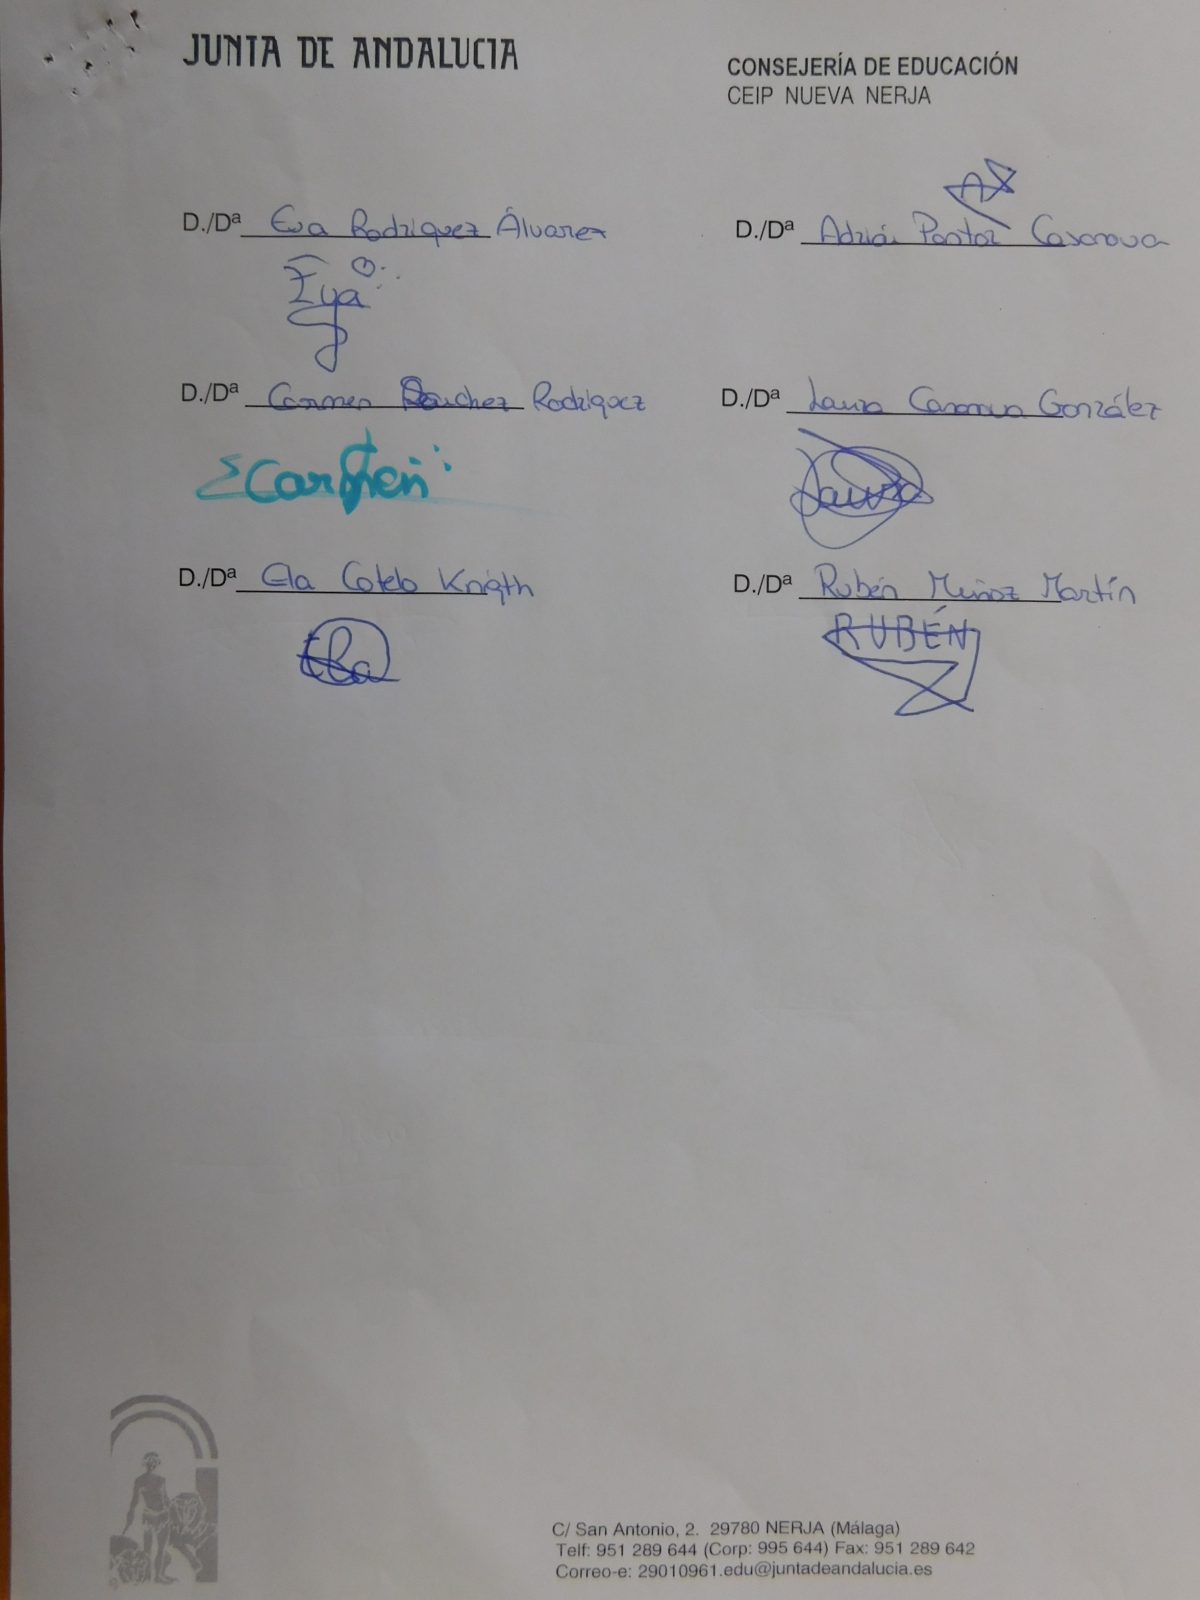 JUNTA DE ANDALUCIA
CONSEJERÍA DE EDUCACIÓN
CEIP NUEVA NERJA
D./Dª Eva Rodriguez Álvarez
D./Dª Adrián Pastor Casanova
Eva
D./Dª Carmen Sánchez Rodriguez
D./Dª Laura Casanova González
Carmen
Laura
D./Dª Ela Cotelo Knigth
D./Dª Rubén Muñoz Martín
Ela
RUBÉN
C/ San Antonio, 2. 29780 NERJA (Málaga)
Telf: 951 289 644 (Corp: 995 644) Fax: 951 289 642
Correo-e: 29010961.edu@juntadeandalucia.es